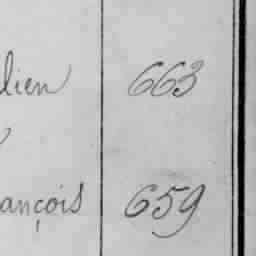 lien 663
ançois 659